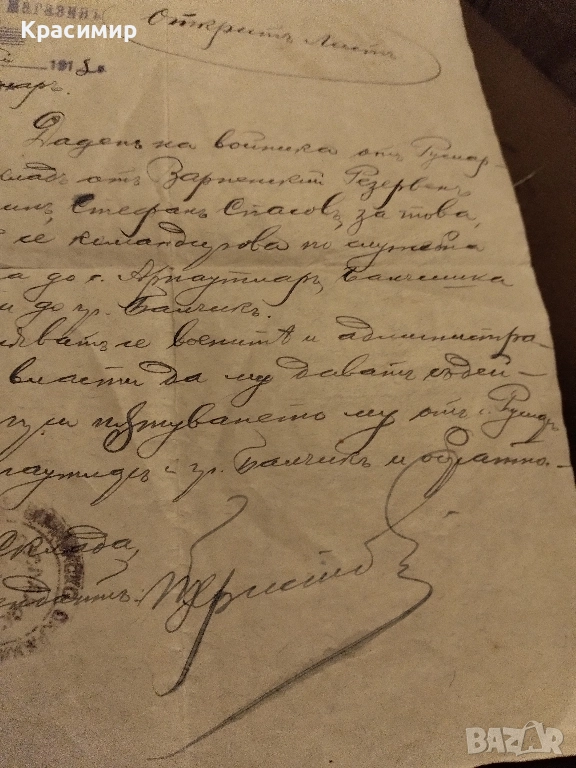 Магазинъ
Красимир
Открить Листъ
191
каръ.
Даденъ на войника отъ Румар-
складъ отъ Варненский Резервенъ
Стефанъ Спасовъ, за това,
се командирова по служба
а до с. Арнаутларъ, Балчишка
и до гр. Балчикъ.
се военитѣ и администра-
власти да му даватъ съдей-
при пѫтуването му отъ с. Румаръ
гр. Балчикъ и обратно.
склада,
BAZAR